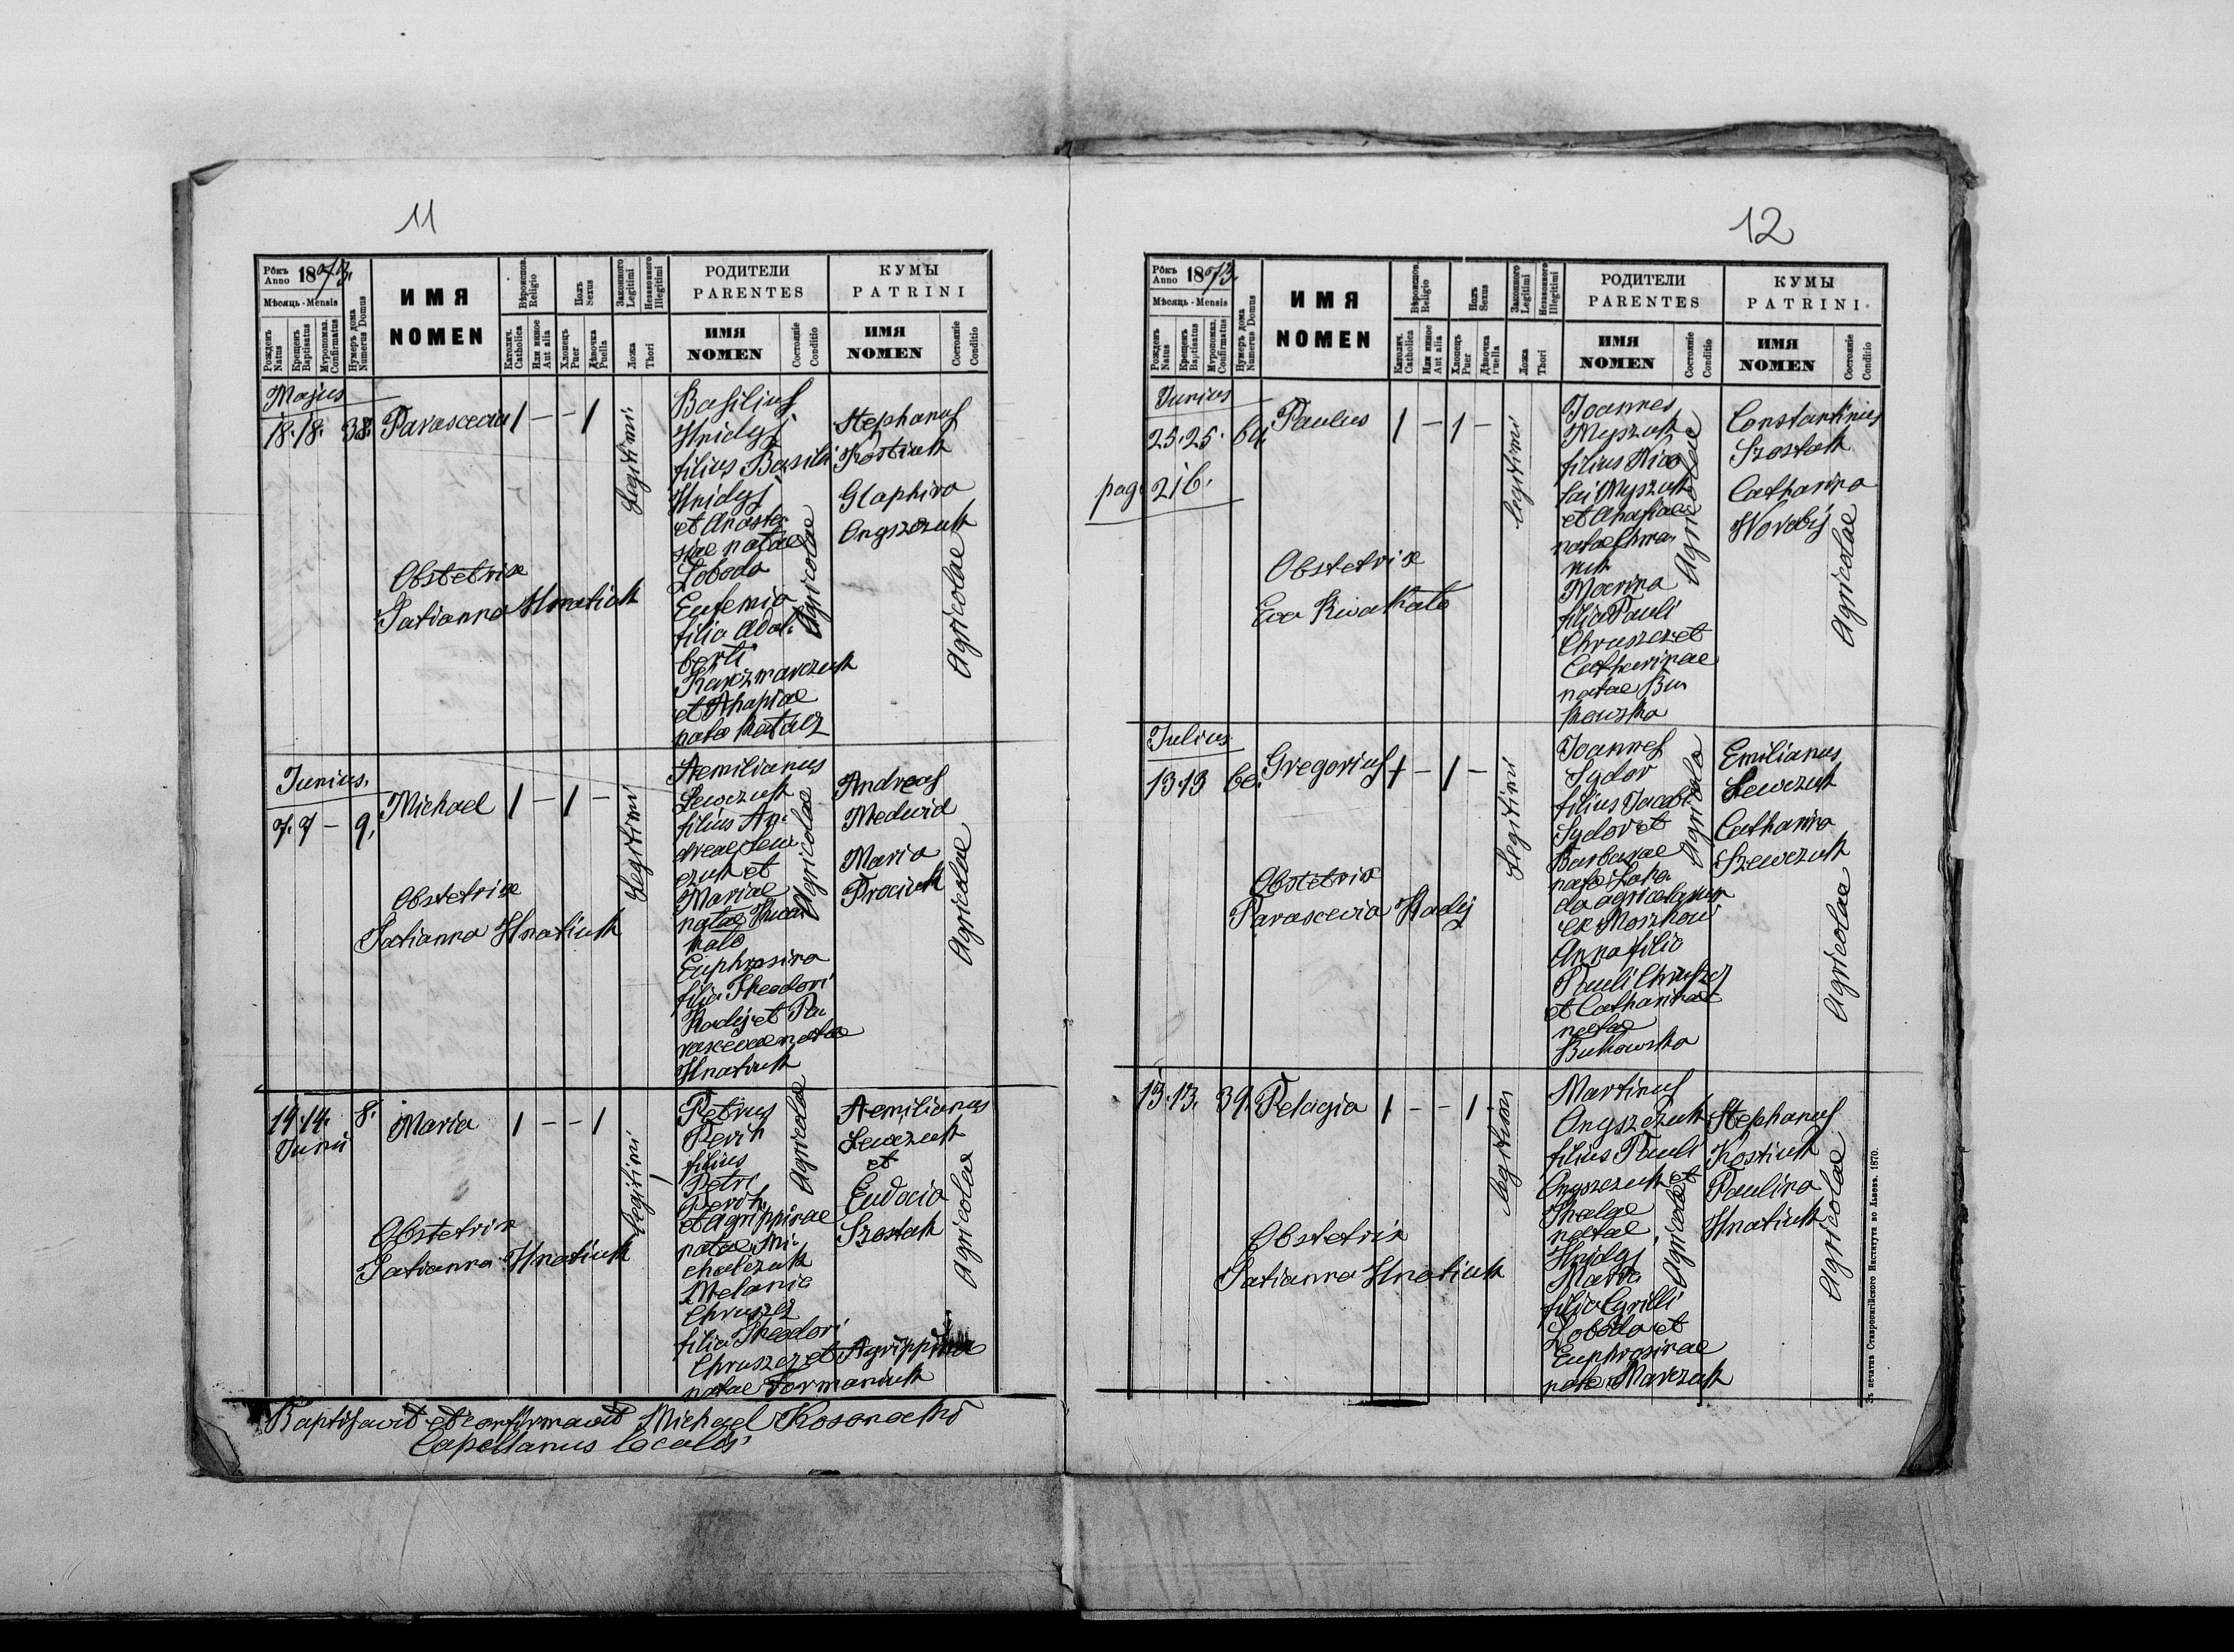 11
Рôкъ Anno 1873.
Мѣсяць - Mensis
Рожденъ Natus
Крещенъ Baptisatus
Муропомаз. Confirmatus
Нумеръ дома Numerus Domus
ИМЯ
NOMEN
Вѣроиспов. Religio
Католич. Catholica
Или инное Aut alia
Полъ Sexus
Хлопець Puer
Дѣвочка Puella
Законного Legitimi
Незаконного Illegitimi
Ложа Thori
РОДИТЕЛИ
PARENTES
ИМЯ
NOMEN
Состояніе Conditio
КУМЫ
PATRINI
ИМЯ
NOMEN
Состояніе Conditio
Majus
18. 18. 38. Parascevia 1 - - 1
Legitimi
Obstetrix
Tatianna Hnatiuk
Basilius
Hnidyj
filius Basilii
Hnidyj
et Anasta-
siae natae
Loboda
Eufemia
filia Adal-
berti
Karczmarczuk
et Ahapiae
nata
Agricolae
Stephanus
Kostiuk
Glaphira
Onyszczuk
Agricolae
Junius.
7. 7 - 9. Michael 1 - 1 -
Legitimi
Obstetrix
Tatianna Hnatiuk
Aemilianus
Lewczuk
filius An-
dreae Lew-
czuk et
Mariae
natae
Euphrosina
filia Theodori
Hadij et Pa-
rasceviae natae
Hnatiuk
Agricolae
Andreas
Medwid
Maria
Prociuk
Agricolae
14. 14. 8. Maria 1 - - 1
Junii
Legitimi
Obstetrix
Tatianna Hnatiuk
Petrus
filius
Petri
et Agrippinae
natae Mi-
chalczuk
Melania
Chruszcz
filia Theodori
Chruszcz et Agrippina
natae Formaniuk
Agricolae
Aemilianus
Lewczuk
et
Eudocia
Szostak
Agricolae
Baptisavit et confirmavit Michael
Capellanus localis
12
Рôкъ Anno 1873.
Мѣсяць - Mensis
Рожденъ Natus
Крещенъ Baptisatus
Муропомаз. Confirmatus
Нумеръ дома Numerus Domus
ИМЯ
NOMEN
Вѣроиспов. Religio
Католич. Catholica
Или инное Aut alia
Полъ Sexus
Хлопець Puer
Дѣвочка Puella
Законного Legitimi
Незаконного Illegitimi
Ложа Thori
РОДИТЕЛИ
PARENTES
ИМЯ
NOMEN
Состояніе Conditio
КУМЫ
PATRINI
ИМЯ
NOMEN
Состояніе Conditio
Junius
25. 25. Paulus 1 - 1 -
pag. 216.
legitimi
Obstetrix
Eva
Joannes
Myszuk
filius Nico
lai Myszuk
et
natae
Marina
filia Pauli
Chruszcz et
Catharinae
natae Bu-
kowska
Agricolae
Constantinus
Szostak
Catharina
Worobij
Agricolae
Julius
13. 13 Gregorius 1 - 1 -
Legitimi
Obstetrix
Parascevia Hadij
Joannes
Sydor
filius Jacobi
Sydor et
Barbarae
nata
agricolarum
ex Moszkow
Anna filia
Pauli Chruszcz
et Catharinae
natae
Bukowska
Agricola
Emilianus
Lewczuk
Catharina
Szewczuk
Agricolae
13. 13. 39. Pelagia 1 - - 1
legitimi
Obstetrix
Tatianna Hnatiuk
Martinus
Onyszczuk
filius Pauli
Onyszczuk et
natae
Hnidyj
filia Cyrilli
Loboda et
Euphrosinae
nata Marczuk
Agricolae
Stephanus
Kostiuk
Paulina
Hnatiuk
Agricolae
Зъ печатнѣ Ставропигійского Института во Львовѣ. 1870.